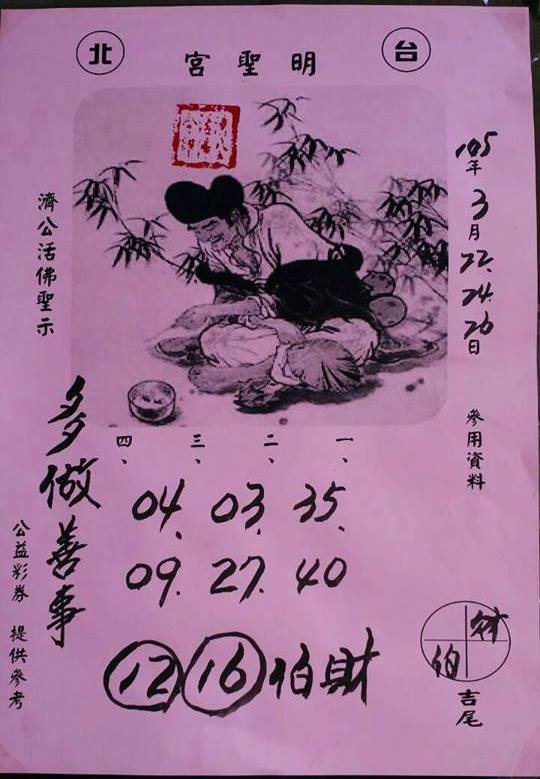 台北
明聖宮
105年3月22.24.26日
參用資料
濟公活佛聖示
一、 二、 三、 四、
04. 03. 35.
09. 27. 40
12 16 伯財
多做善事
公益彩券 提供參考
財
伯
吉尾